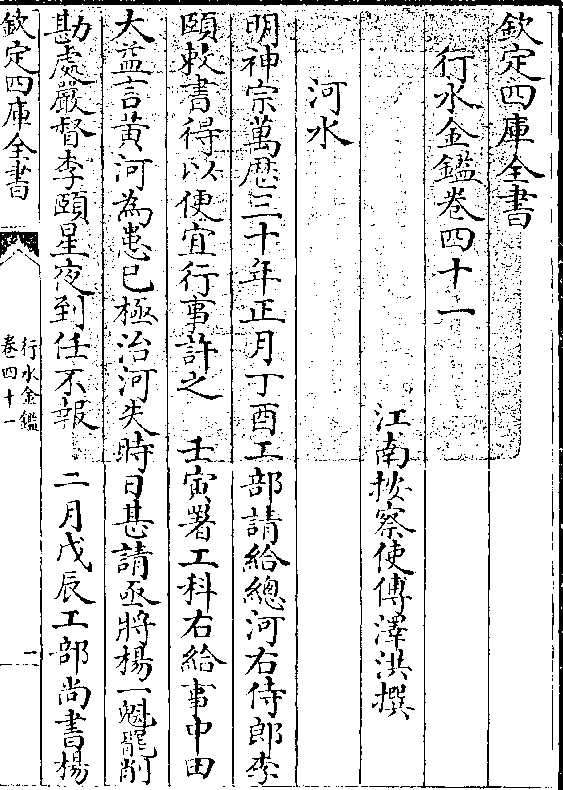 欽定四庫全書
行水金鑑卷四十一
江南按察使傅澤洪撰
河水
明神宗萬厯三十年正月丁酉工部請給總河右侍郎李
頤敕書得以便宜行事許之　壬寅署工科右給事中田
大益言黄河為患已極治河失時日甚請亟將楊一魁罷削
勘處嚴督李頤星夜到任不報　二月戊辰工部尚書楊
欽定四庫全書
行水金鑑
卷四十一
一